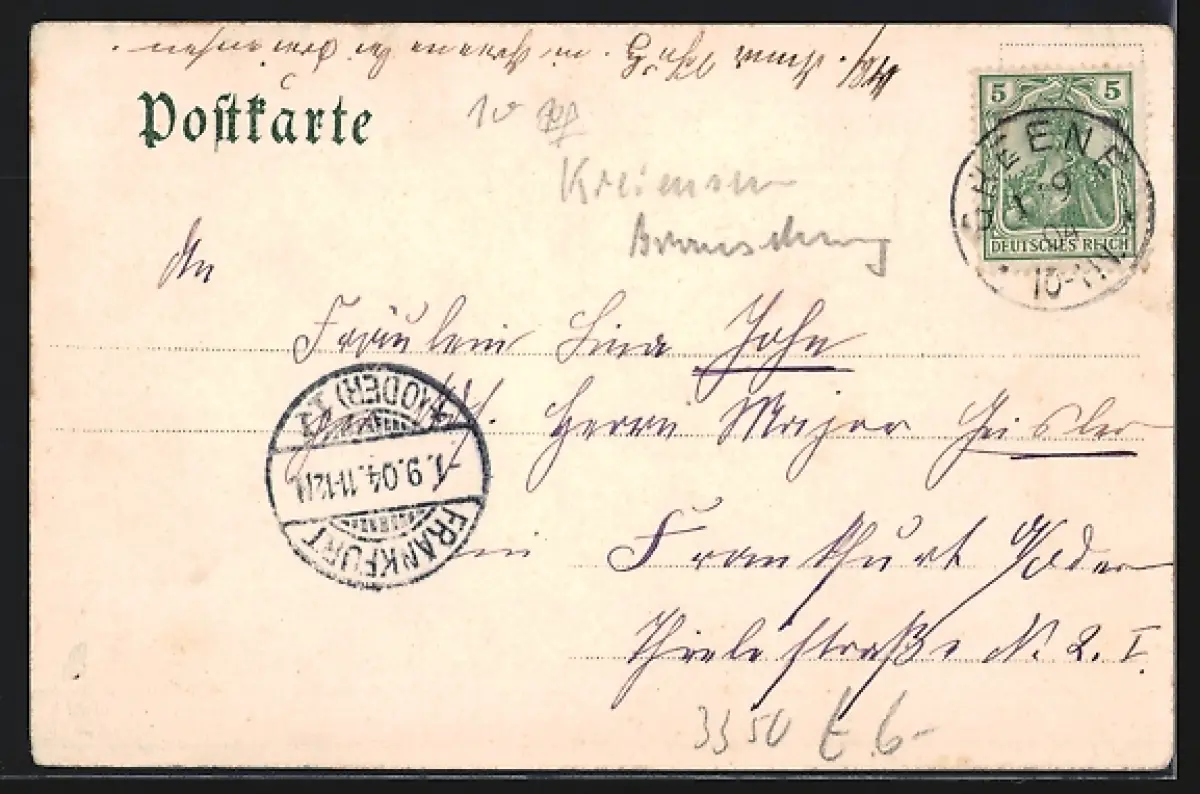 Postkarte
10 Pf
Kreiensen
Braunschweig
5 5
DEUTSCHES REICH
GREENE
1 9
04
10-11V.
An
Fräulein Lina John
Herrn Major Geisler
in Frankfurt a/Oder
Thielestraße N. 2. I
FRANKFURT
(ODER) 1.
1.9.04.11-12
3350 E 6-